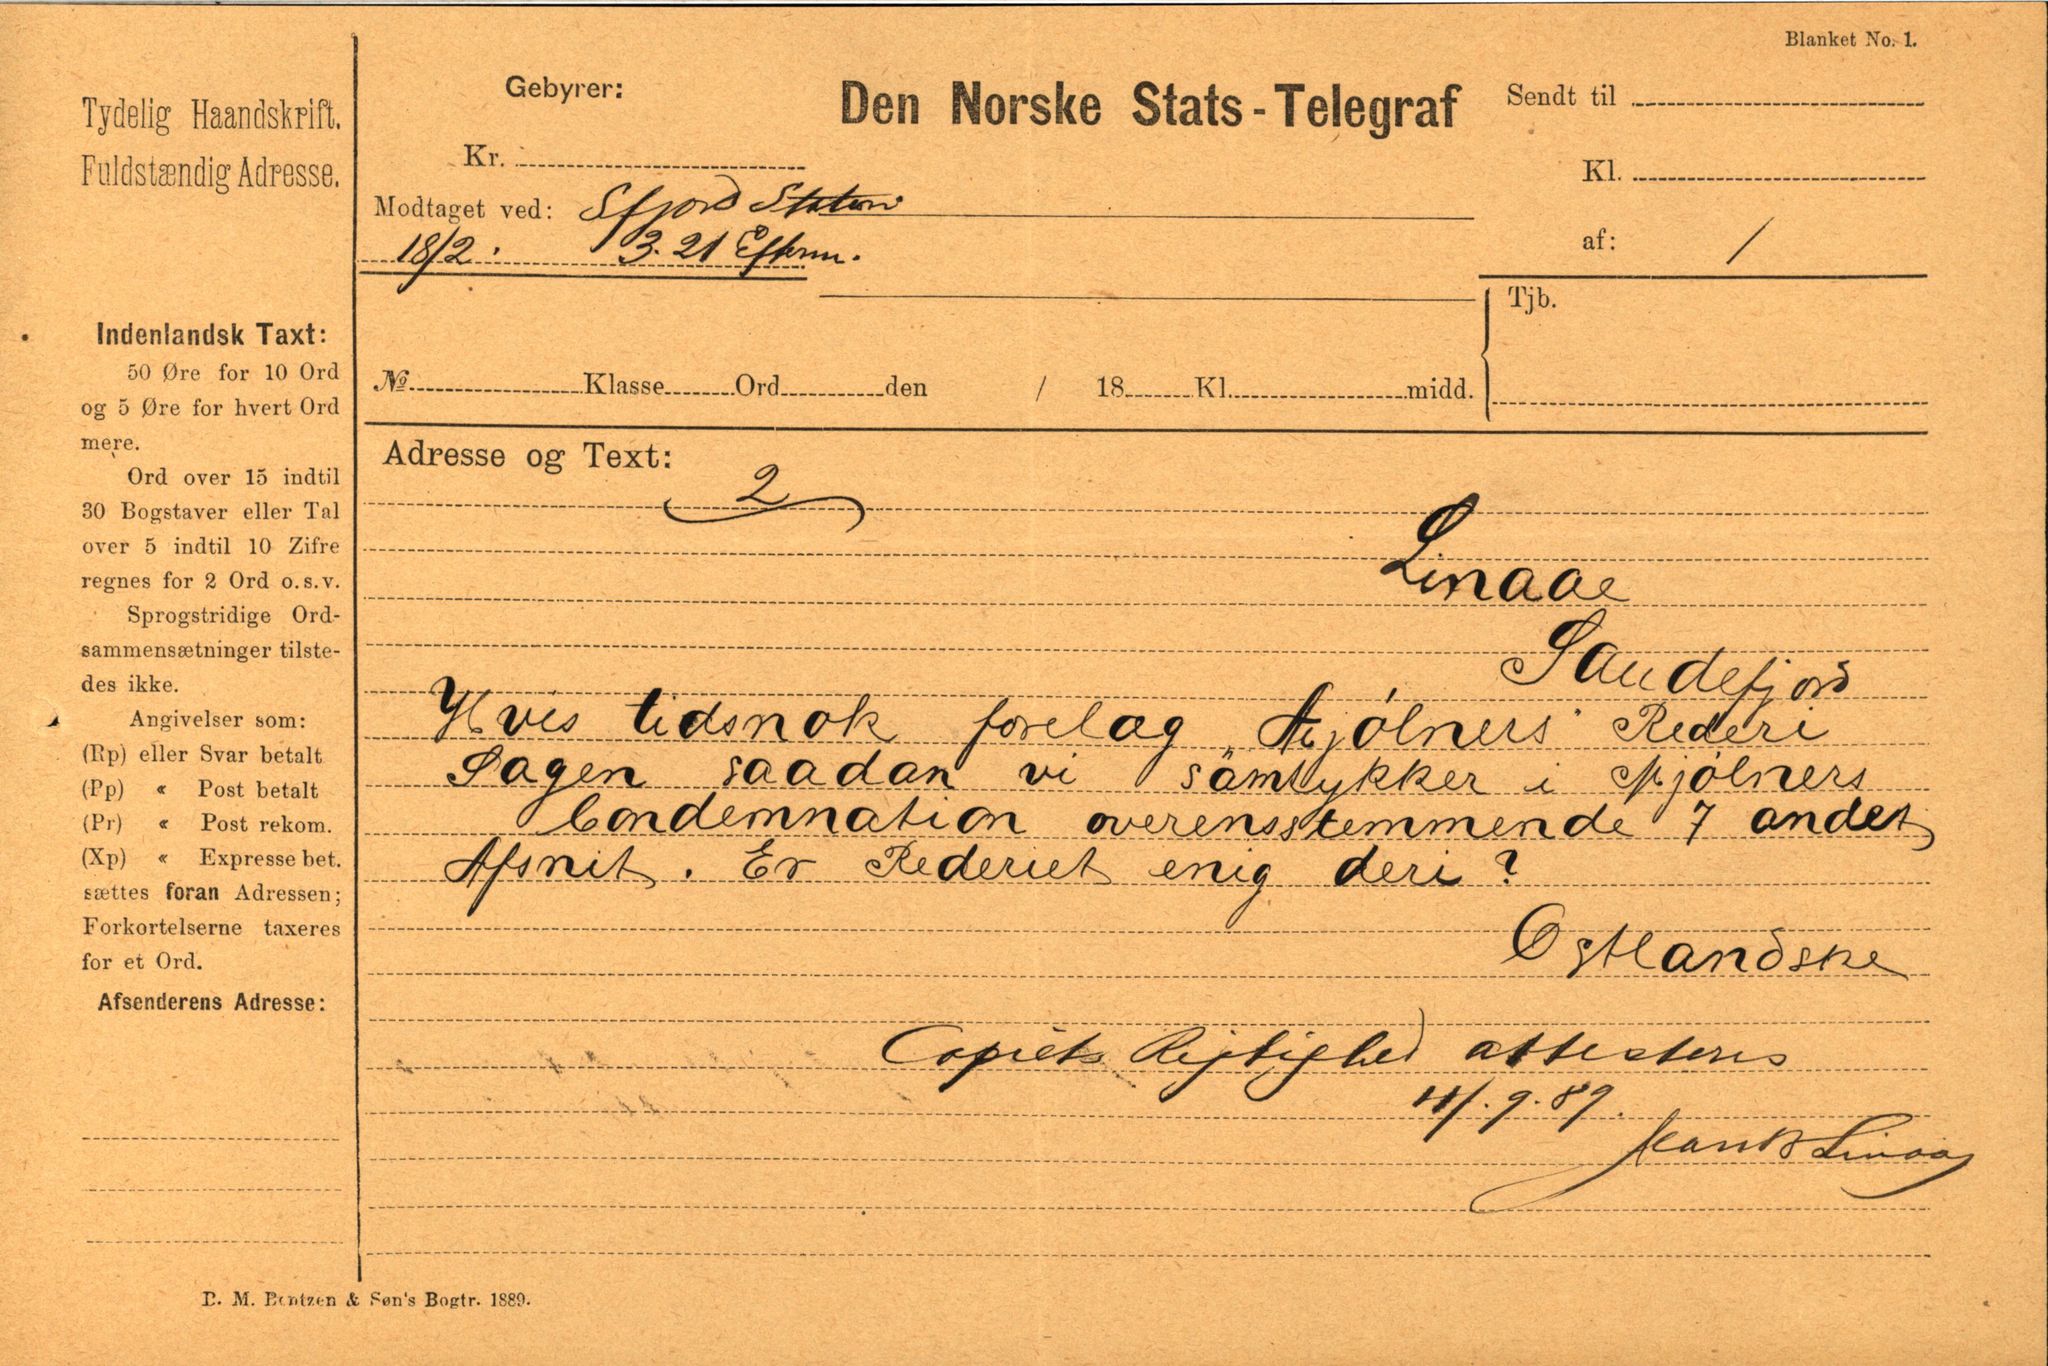 Blanket No. 1.
Tydelig Haandskrift.
Fuldstændig Adresse.
Gebyrer:
Kr.
Den Norske Stats-Telegraf
Sendt til
Kl.
af: /
Modtaget ved: Sfjord Station
18/2. 3.21 Efterm.
Tjb.
No Klasse Ord den / 18 Kl. midd.
Indenlandsk Taxt:
50 Øre for 10 Ord
og 5 Øre for hvert Ord
mere.
Ord over 15 indtil
30 Bogstaver eller Tal
over 5 indtil 10 Zifre
regnes for 2 Ord o.s.v.
Sprogstridige Ord-
sammensætninger tilste-
des ikke.
Angivelser som:
(Rp) eller Svar betalt
(Pp) « Post betalt
(Pr) « Post rekom.
(Xp) « Expresse bet.
sættes foran Adressen;
Forkortelserne taxeres
for et Ord.
Afsenderens Adresse:
Adresse og Text:
2
Linaae
Sandefjord
Hvis tidsnok forelæg „Mjølners" Rederi
Sagen saadan vi samtykker i Mjølners
Condemnation overensstemmende 7 andet
Afsnit. Er Rederiet enig deri?
Østlandske
Copiets Rigtighed attesteres
11/.9.89.
Linaae
B. M. Bentzen & Søn's Bogtr. 1889.